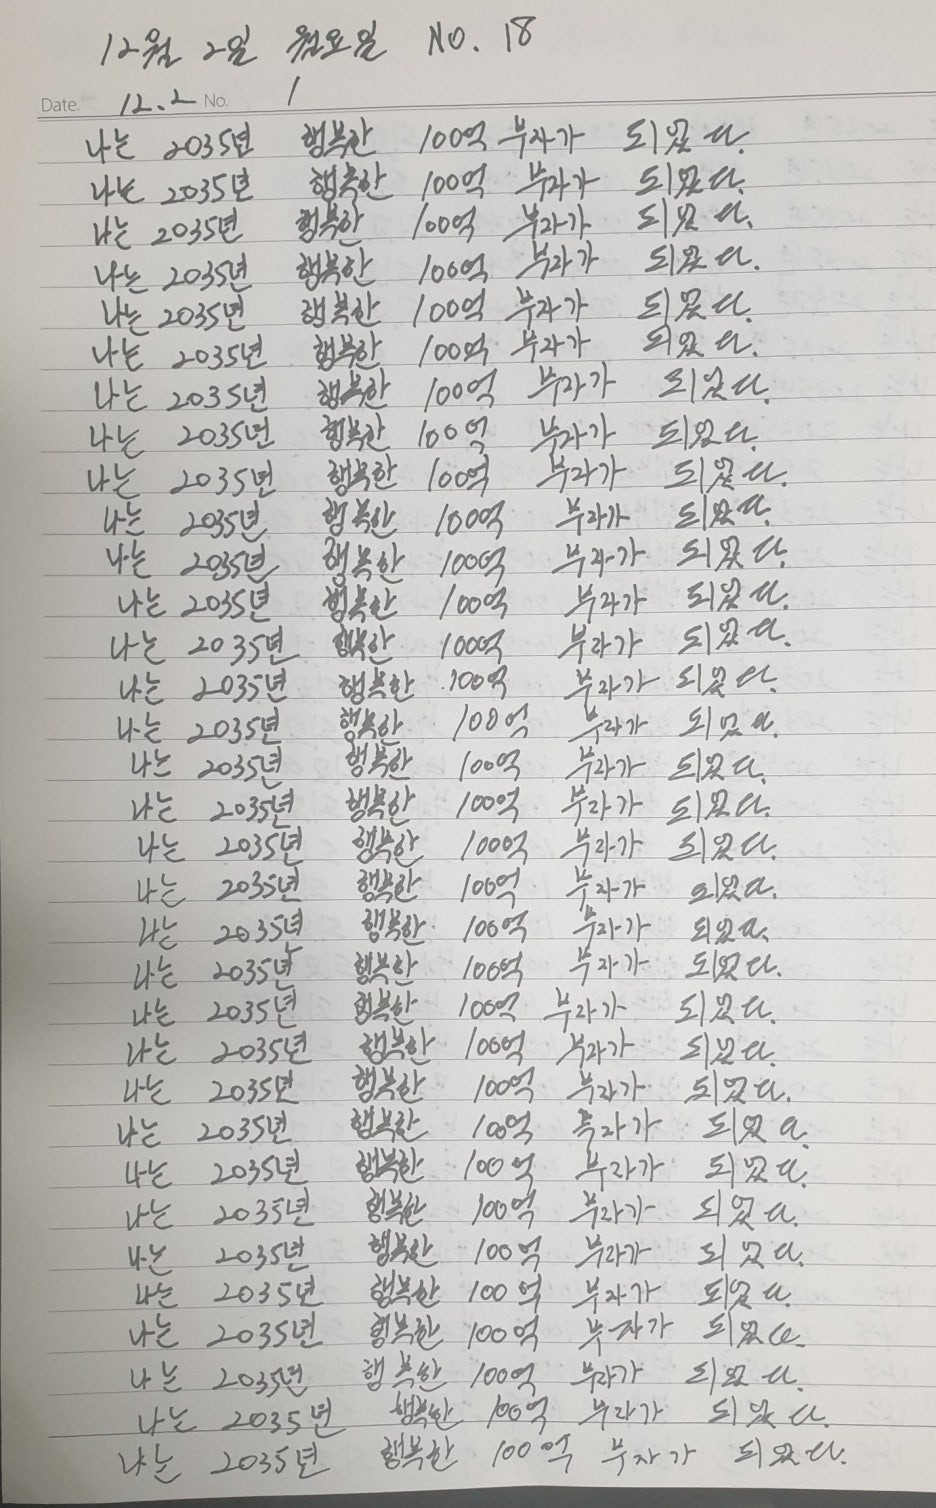 12월 2일 월요일 NO. 18
Date. 12.2 No. 1
나는 2035년 행복한 100억 부자가 되었다.
나는 2035년 행복한 100억 부자가 되었다.
나는 2035년 행복한 100억 부자가 되었다.
나는 2035년 행복한 100억 부자가 되었다.
나는 2035년 행복한 100억 부자가 되었다.
나는 2035년 행복한 100억 부자가 되었다.
나는 2035년 행복한 100억 부자가 되었다.
나는 2035년 행복한 100억 부자가 되었다.
나는 2035년 행복한 100억 부자가 되었다.
나는 2035년 행복한 100억 부자가 되었다.
나는 2035년 행복한 100억 부자가 되었다.
나는 2035년 행복한 100억 부자가 되었다.
나는 2035년 행복한 100억 부자가 되었다.
나는 2035년 행복한 100억 부자가 되었다.
나는 2035년 행복한 100억 부자가 되었다.
나는 2035년 행복한 100억 부자가 되었다.
나는 2035년 행복한 100억 부자가 되었다.
나는 2035년 행복한 100억 부자가 되었다.
나는 2035년 행복한 100억 부자가 되었다.
나는 2035년 행복한 100억 부자가 되었다.
나는 2035년 행복한 100억 부자가 되었다.
나는 2035년 행복한 100억 부자가 되었다.
나는 2035년 행복한 100억 부자가 되었다.
나는 2035년 행복한 100억 부자가 되었다.
나는 2035년 행복한 100억 부자가 되었다.
나는 2035년 행복한 100억 부자가 되었다.
나는 2035년 행복한 100억 부자가 되었다.
나는 2035년 행복한 100억 부자가 되었다.
나는 2035년 행복한 100억 부자가 되었다.
나는 2035년 행복한 100억 부자가 되었다.
나는 2035년 행복한 100억 부자가 되었다.
나는 2035년 행복한 100억 부자가 되었다.
나는 2035년 행복한 100억 부자가 되었다.